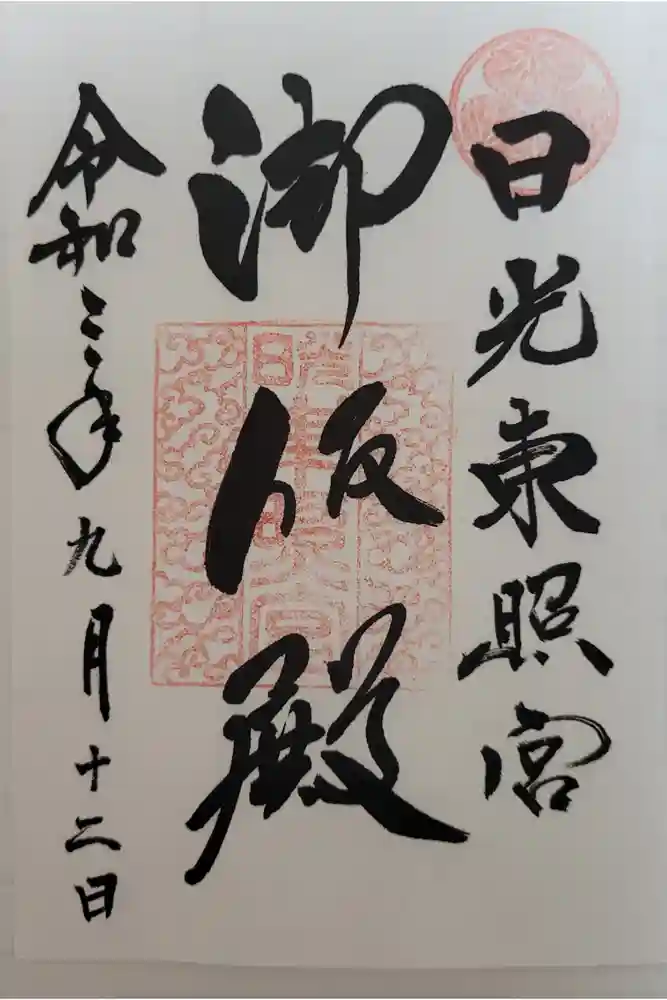 日光東照宮
御仮殿
令和三年九月十二日